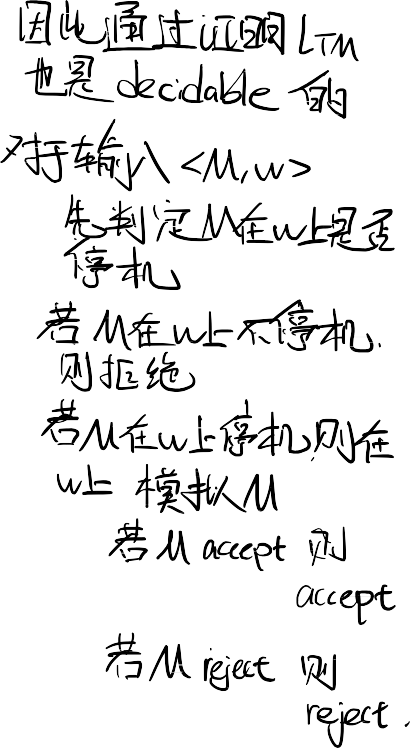 因此通过证明 L_TM
也是 decidable 的
对于输入 <M,w>
先判定M在w上是否
停机
若M在w上不停机.
则拒绝
若M在w上停机,则在
w上 模拟M
若M accept 则
accept
若M reject 则
reject.